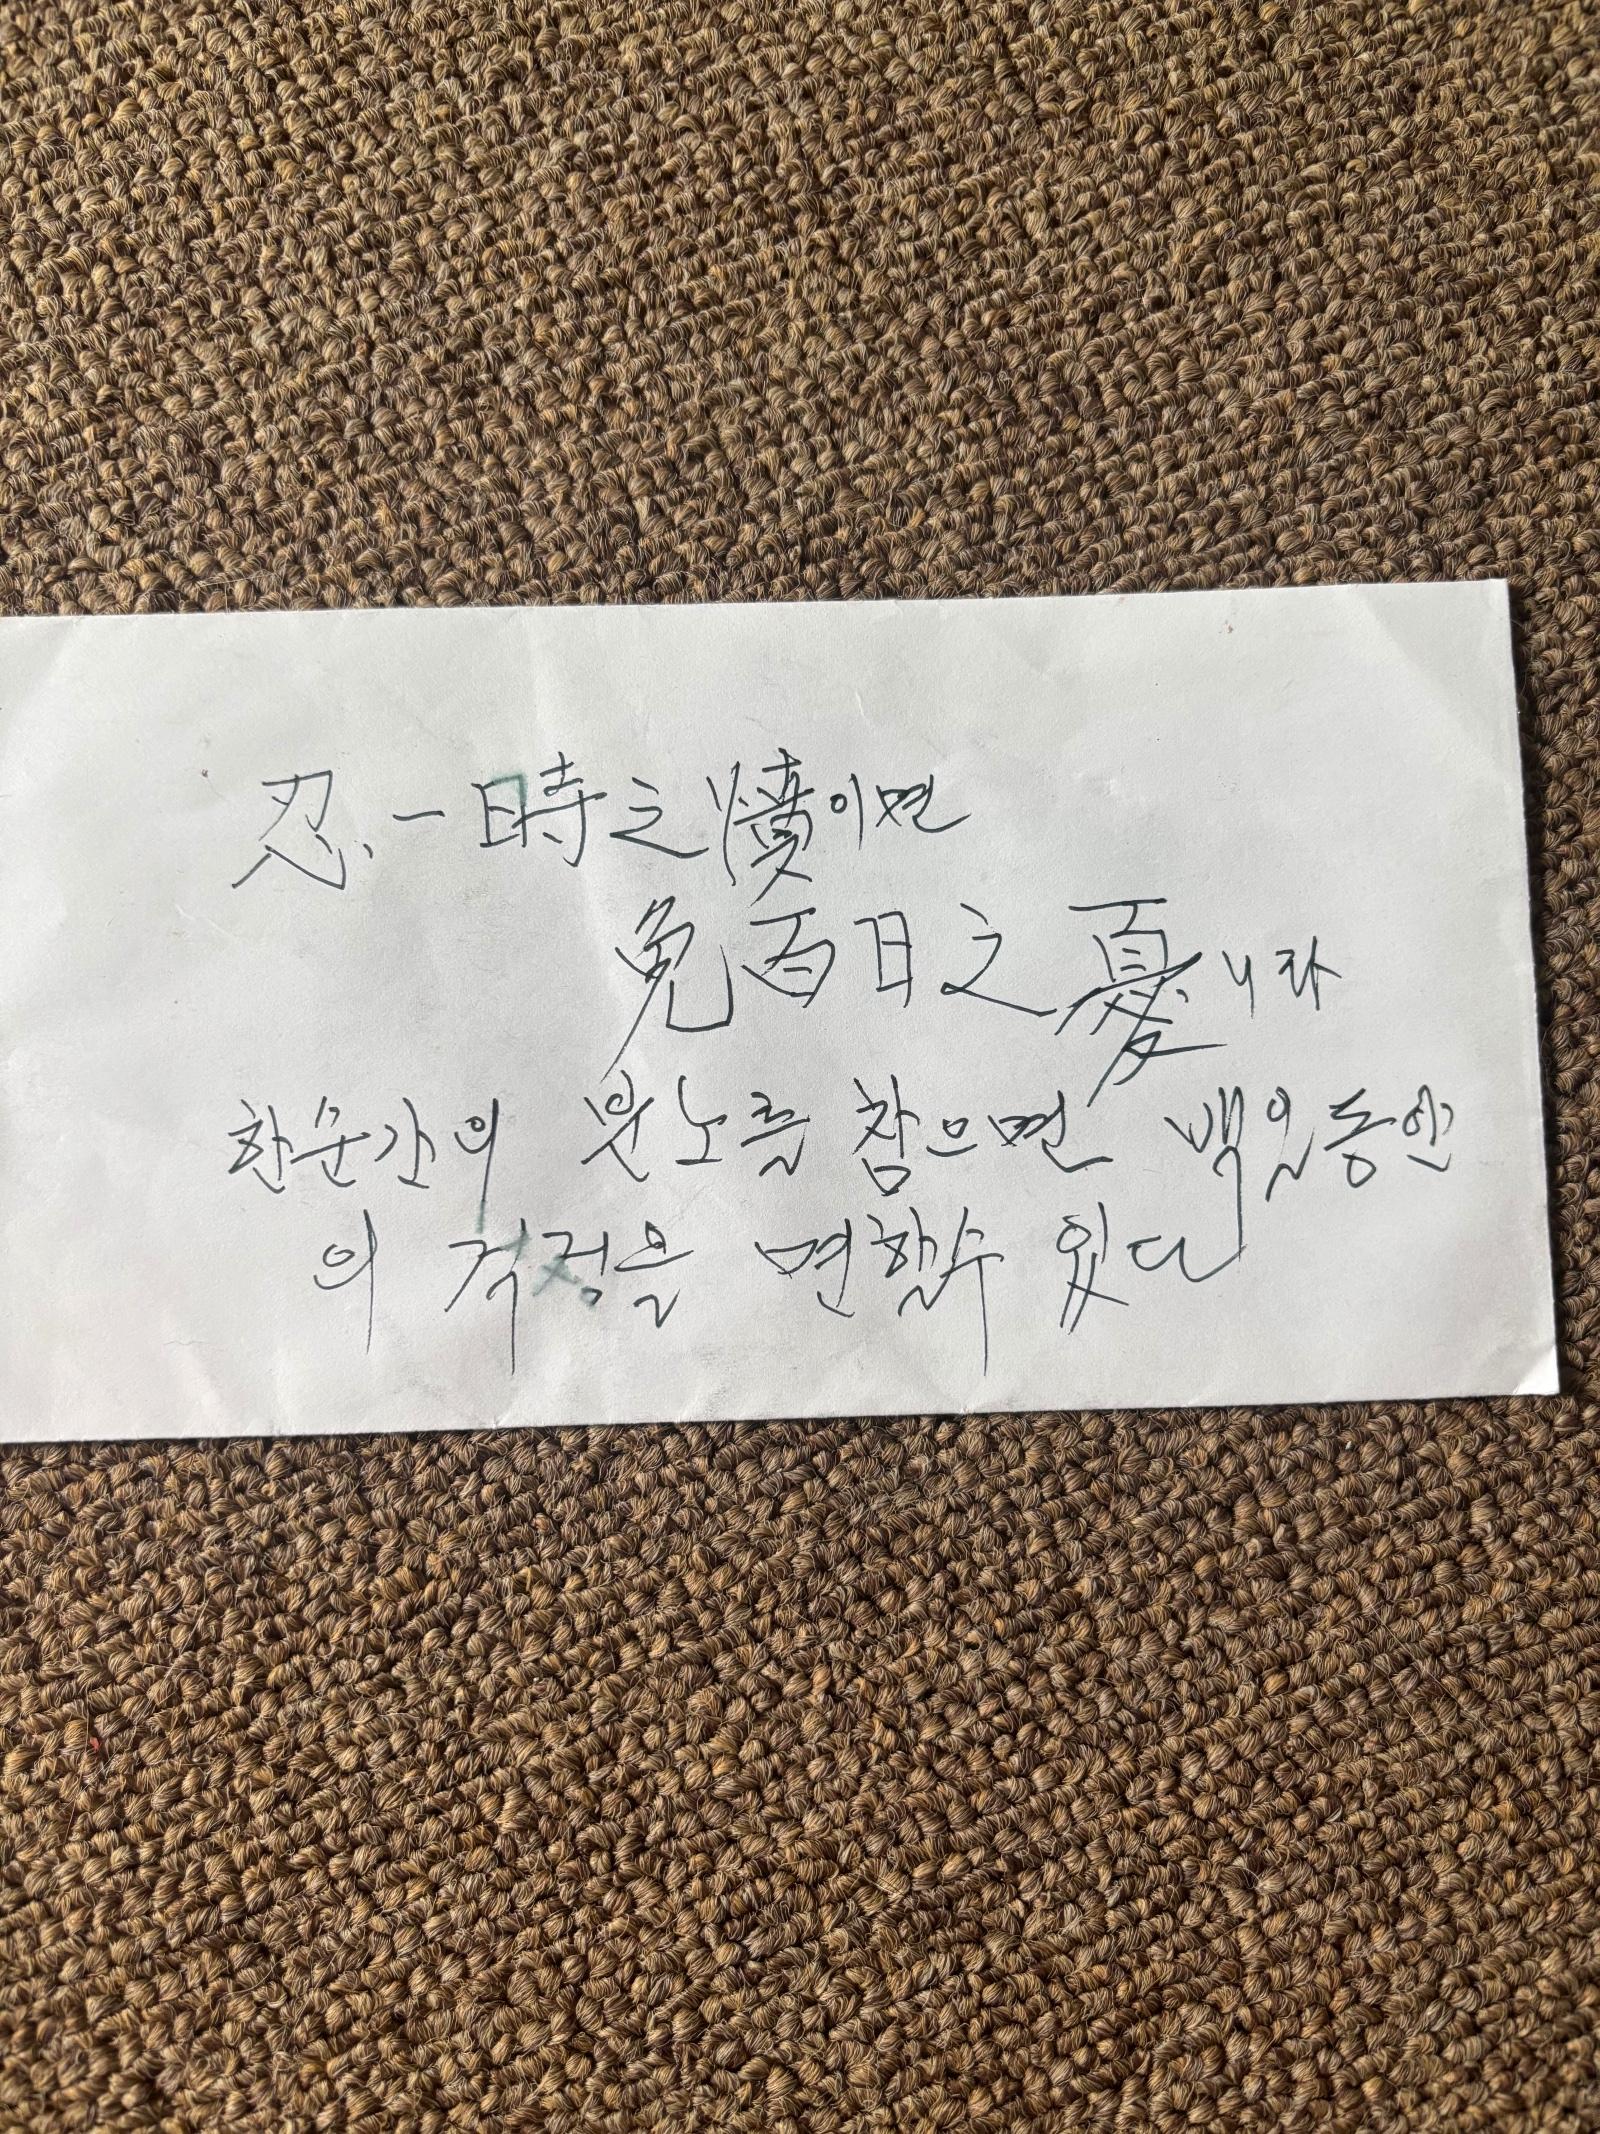 忍一時之憤이면
免百日之憂니라
한순간의 분노를 참으면 백일동안
의 걱정을 면할수 있다